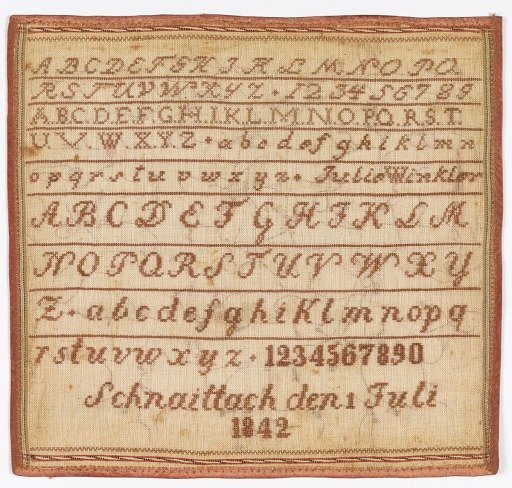 A B C D E F G H I K L M N O P Q
R S T U V W X Y Z · 1 2 3 4 5 6 7 8 9
A.B.C.D.E.F.G.H.I.K.L.M.N.O.P.Q.R.S.T.
U.V.W.X.Y.Z · a b c d e f g h i k l m n
o p q r s t u v w x y z · Julie Winkler
A B C D E F G H I K L M
N O P Q R S T U V W X Y
Z · a b c d e f g h i K l m n o p q
r s t u v w x y z · 1234567890
Schnaittach den 1 Juli
1842